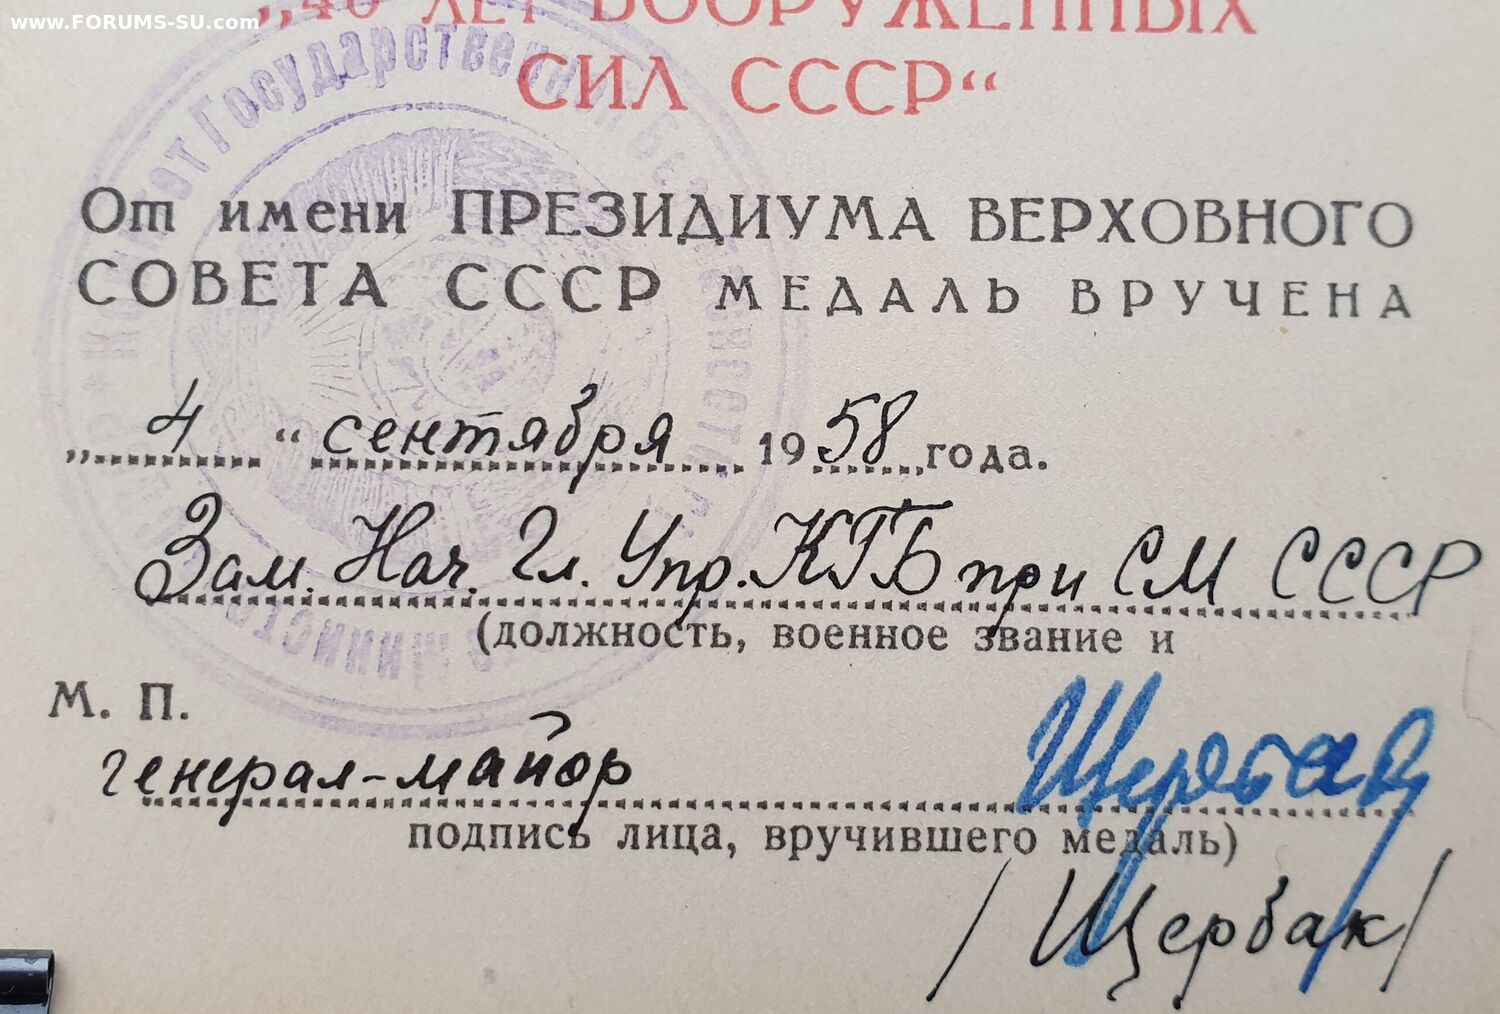 www.FORUMS-SU.com
„40 ЛЕТ ВООРУЖЕННЫХ
СИЛ СССР“
От имени ПРЕЗИДИУМА ВЕРХОВНОГО
СОВЕТА СССР МЕДАЛЬ ВРУЧЕНА
„4“ сентября 1958 года.
Зам. Нач. Гл. Упр. КГБ при СМ СССР
(должность, военное звание и
М. П.
генерал-майор Щербак
подпись лица, вручившего медаль)
/Щербак/
Комитет Государственной Безопасности